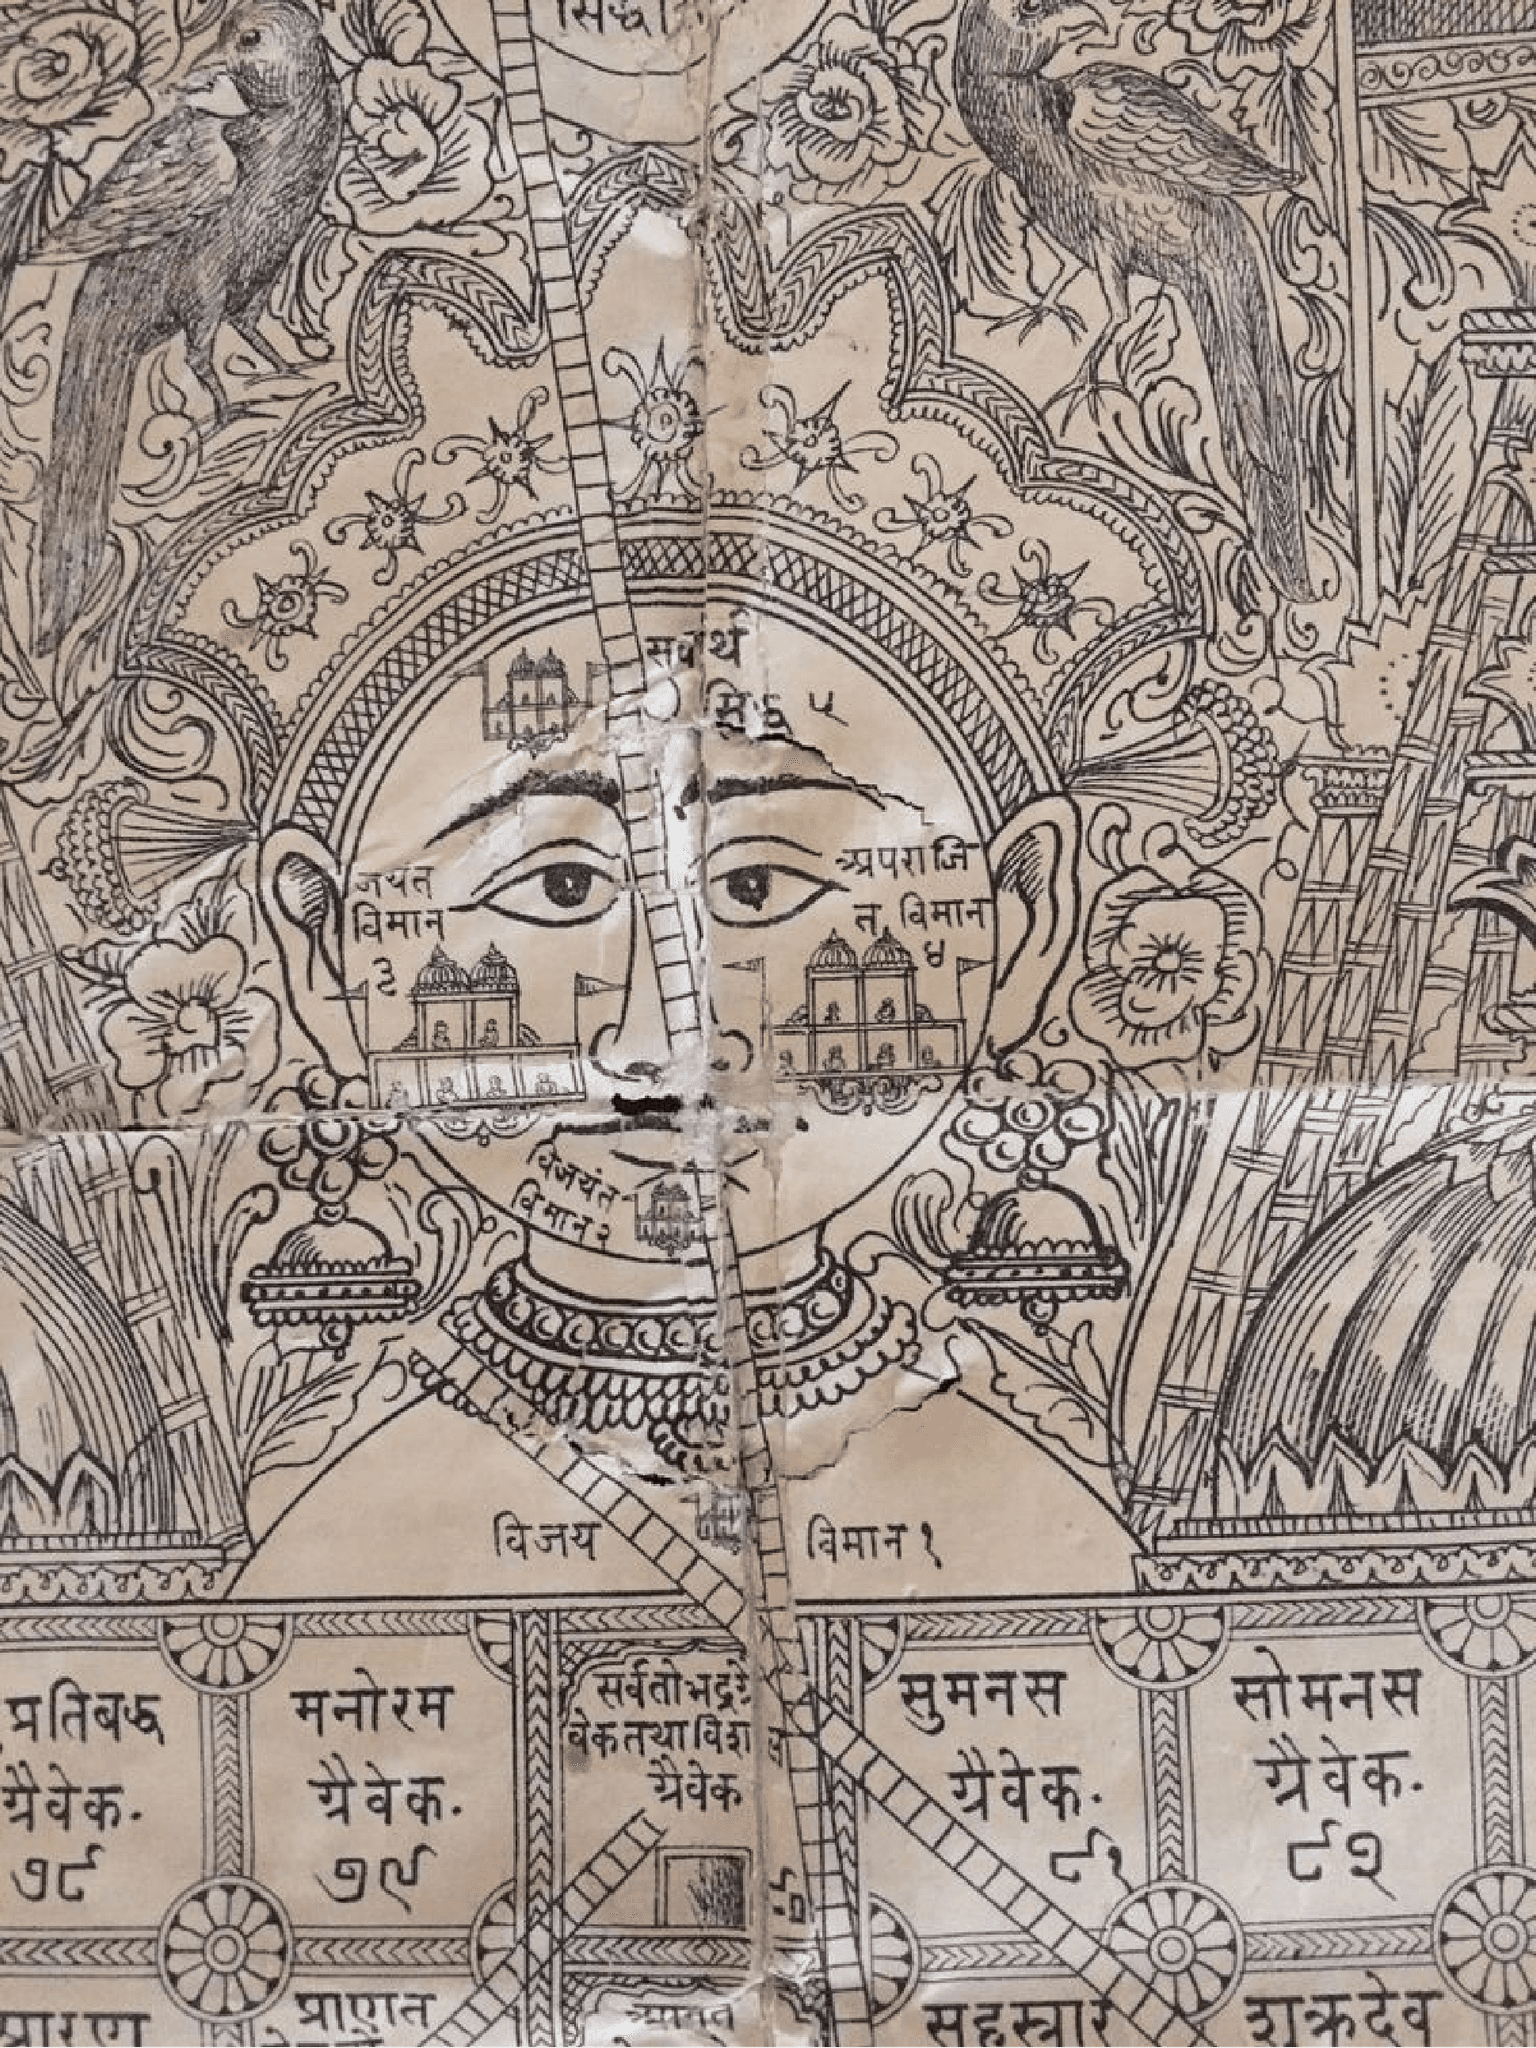 सिद्धशि
सर्वार्थ
सिद्ध ५
जयंत
विमान
३
अपराजि
त विमान
४
विजयंत
विमान २
विजय विमान १
प्रतिबद्ध
ग्रैवेक.
७८
मनोरम
ग्रैवेक.
७९
सर्वतोभद्रग्रै
वेक तथा विशाल
ग्रैवेक
८०
सुमनस
ग्रैवेक.
८१
सोमनस
ग्रैवेक.
८२
प्राणत
सहस्त्रार
शुक्रदेव